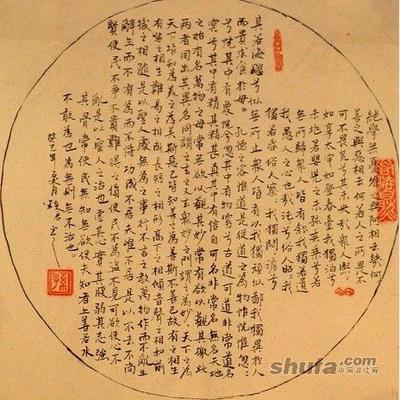 絕學無憂唯之與阿相去幾何
善之與惡相去何若人之所畏不
可不畏荒兮其未央哉衆人熙
如享太牢如登春臺我獨泊兮其
未兆若嬰兒之未孩兮若
無所歸衆人皆有餘我獨若遺
我愚人之心也哉沌兮俗人昭
我獨若昏俗人察我獨悶澹兮
其若海飂兮似無所止衆人皆有以我獨頑似鄙我獨異於人
而貴求食於母孔德之容惟道是從道之為物惟恍惟惚
兮恍其中有象恍惚兮其中有物窈兮道可道非常道名
冥兮其中有精其精甚真其中有信自可名非常名無名天地
之始有名萬物之母常無欲以觀其妙常有欲以觀其徼此
兩者同出而異名同謂之玄玄之又玄衆妙之門
天下皆知美之為美斯惡已皆知善之為善斯不善已故
有無之相生難易之相成長短之相形高下之相傾音聲之相和前
後之相隨是以聖人處無為之事行不言之教萬物作而不
辭生而不有為而不恃功成不居夫唯不居是以不去不尚
賢使民不爭不貴難得之貨使民不為盜不見可欲使心不
亂是以聖人之治也虛其心實其腹弱其志強
其骨常使民無知無欲使夫知者上善若水
不敢為也為無則無不治也
shufa.com